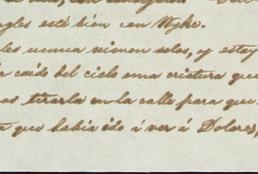 gles esté bien con Wyke.
les nunca vienen solos, y estoy
caido del cielo una criatura que
es tirarla en la calle para que
que habia ido á ver á Dolores,